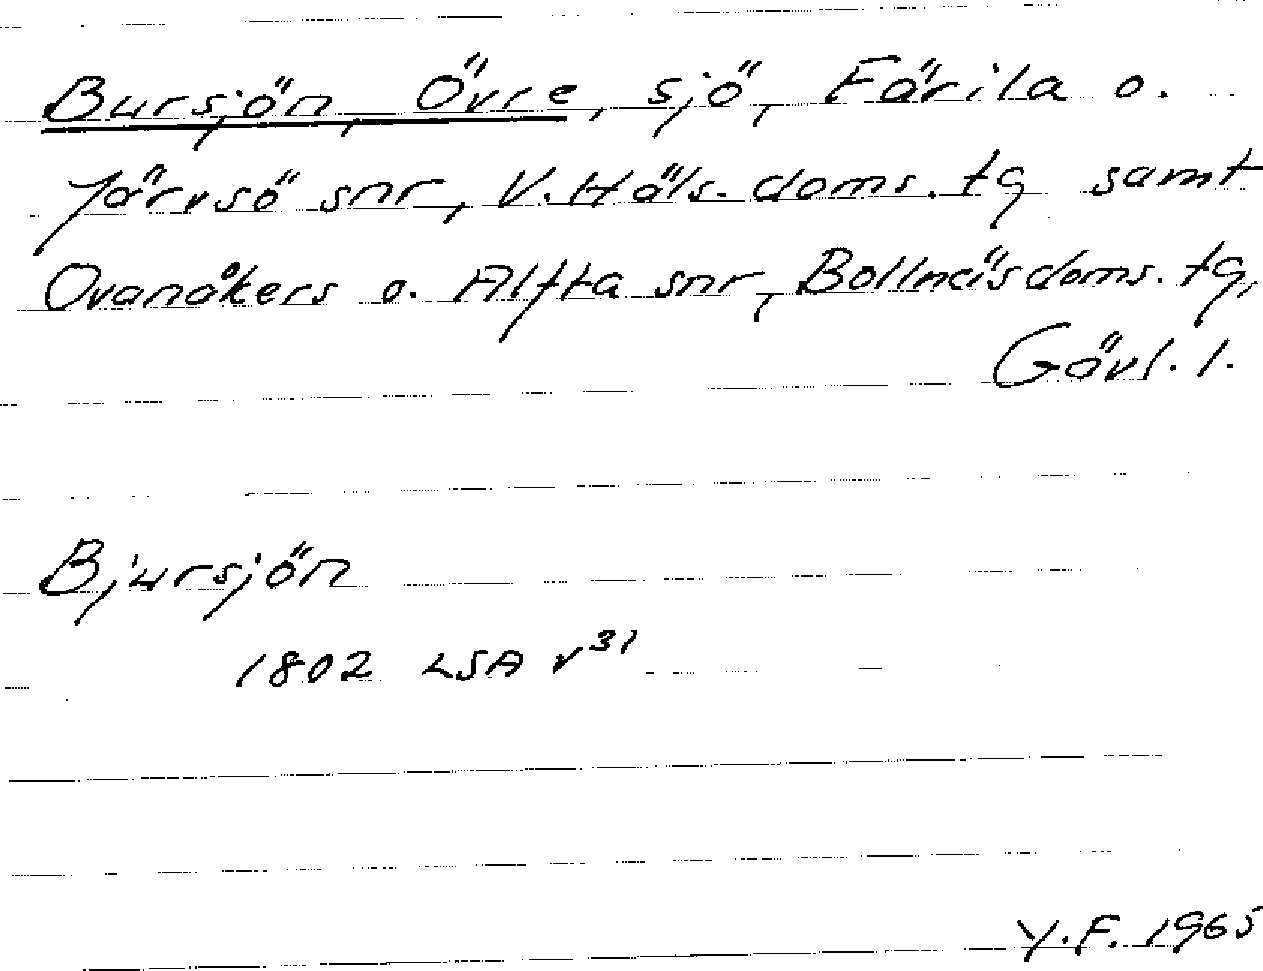 Bursjön, Övre, sjö, Färila o.
Järvsö snr, V. Häls. doms. tg samt
Ovanåkers o. Alfta snr, Bollnäs doms. tg,
Gävl. l.
Bjursjön
1802 LSA v 31
Y.F. 1965